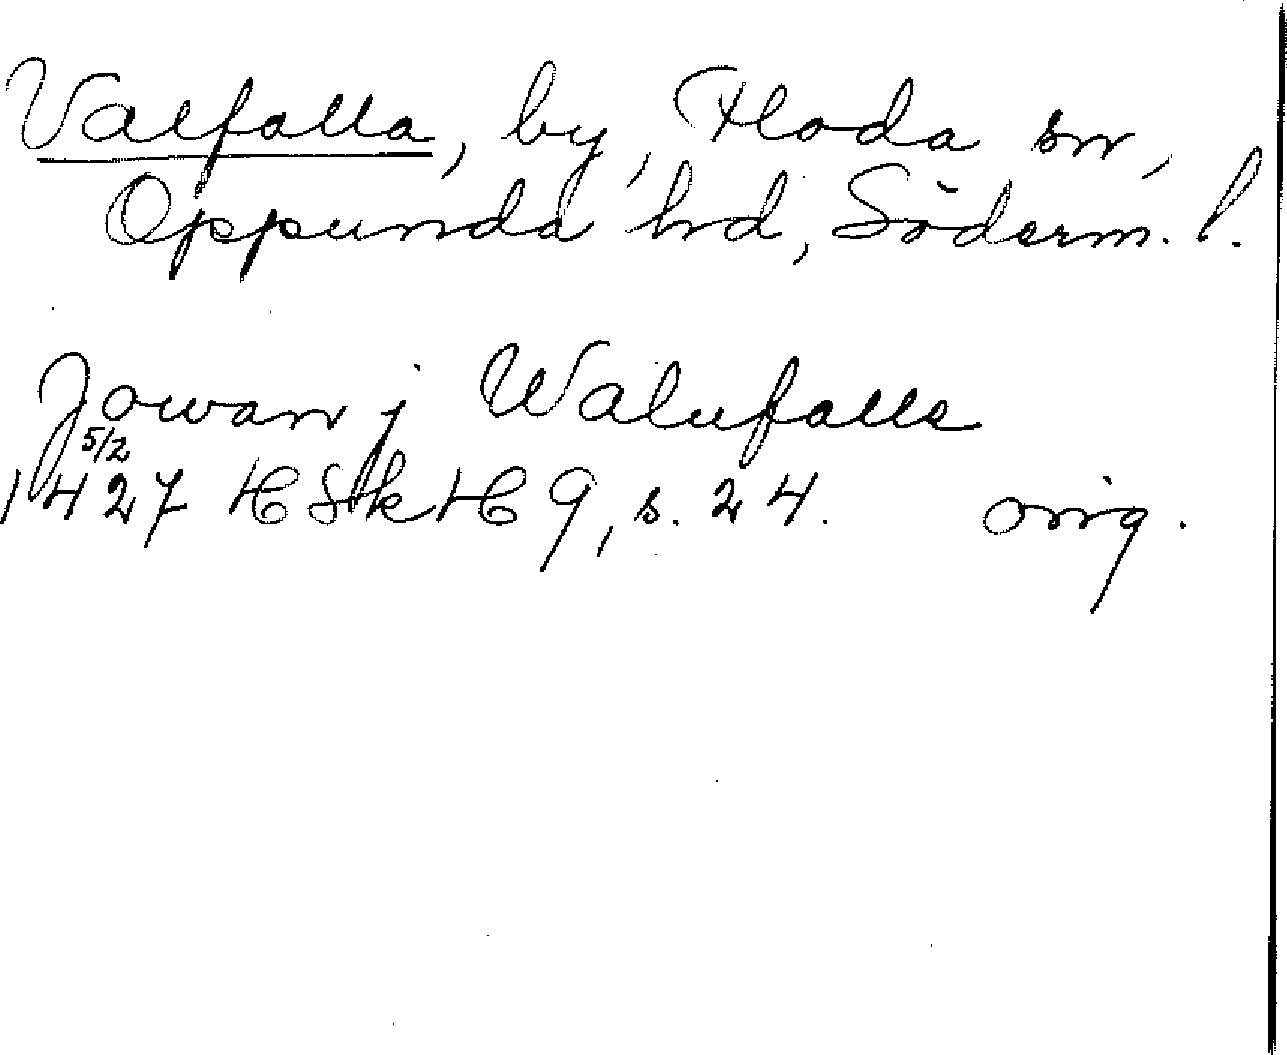 Valfalla, by, Floda sn,
Oppunda hd, Söderm. l.
Jowan j Walufalle
5/2
1427 HSkH 9, s. 24. orig.